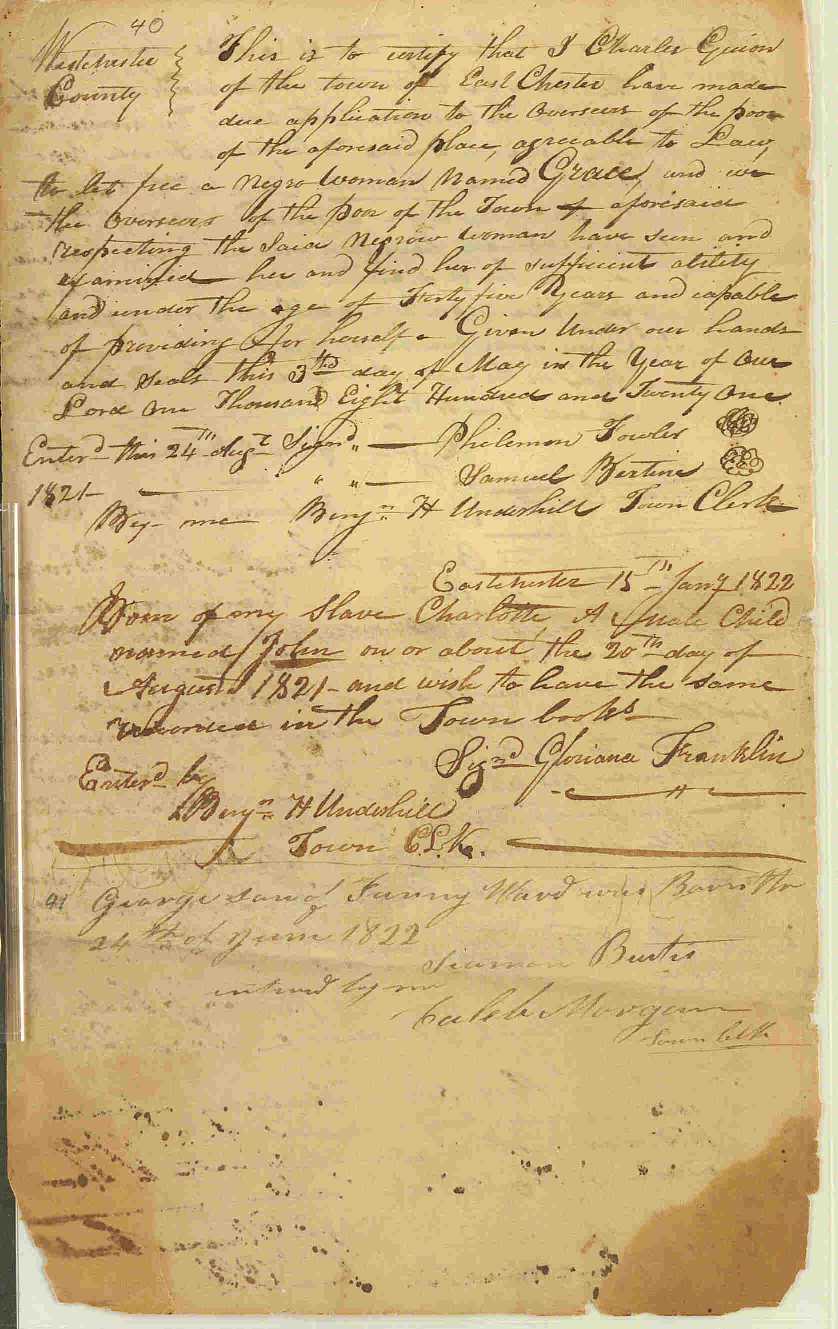 40
Westchester
County
This is to certify that I Charles Guion
of the town of East Chester have made
due application to the Overseers of the poor
of the aforesaid place, agreeable to Law,
to let free a Negro Woman Named Grace, and we
the Overseers of the poor of the Town of aforesaid
respecting the said Negrow Woman have seen and
examined her and find her of sufficient ability
and under the age of Forty five Years and capable
of providing for herself. Given Under our hands
and Seals this 3rd day of May in the Year of Our
Lord One Thousand Eight Hundred and Twenty One.
Enterd this 24th Augt Signd „ — Philemon Fowler
1821 — „ „ — Samuel Bertine
Bey me Benjn H Underhill Town Clerk
Eastchester 15th Jany 1822
Born of my Slave Charlotte, A Male Child
named John on or about the 20th day of
August 1821 and wish to have the same
recorded in the Town books
Signd Gloriana Franklin
Enterd by
Benjn H Underhill
Town C.L.K.
41 George son of Funny Ward was Born the
24th of June 1822
Burtis
entered by me
Caleb Morgan
Town Clk